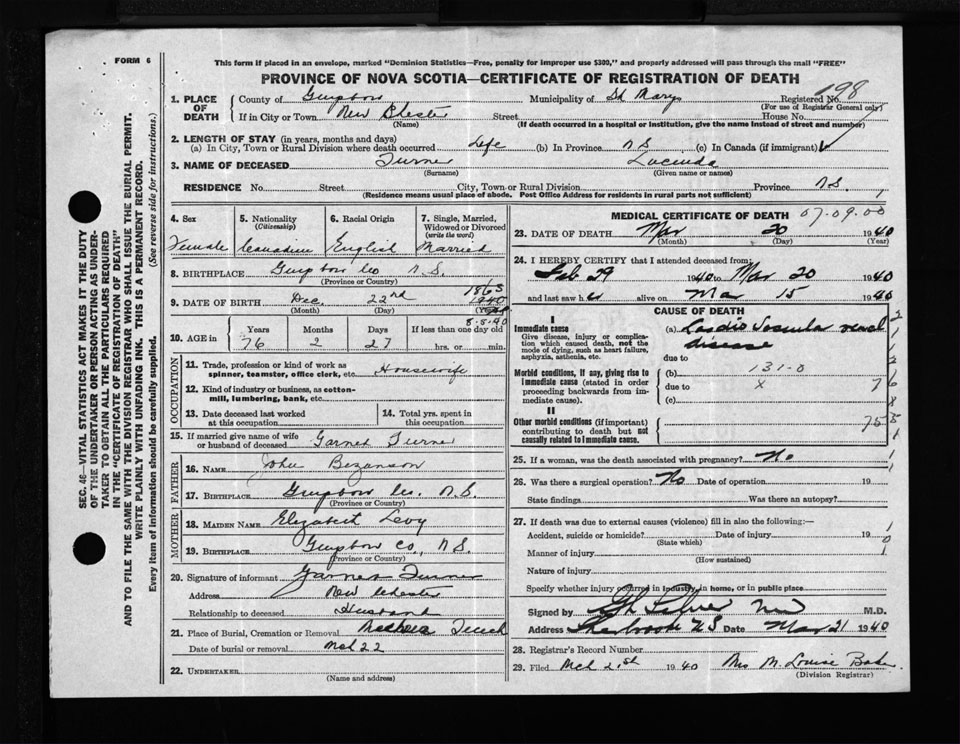 FORM 6
This form if placed in an envelope, marked "Dominion Statistics—Free, penalty for improper use $300," and properly addressed will pass through the mail "FREE"
PROVINCE OF NOVA SCOTIA—CERTIFICATE OF REGISTRATION OF DEATH
198
1. PLACE OF DEATH County of Guysboro Municipality of St Marys Registered No.
(For use of Registrar General only)
If in City or Town New Chester Street House No.
(Name) (If death occurred in a hospital or institution, give the name instead of street and number)
2. LENGTH OF STAY (in years, months and days)
(a) In City, Town or Rural Division where death occurred Life (b) In Province N S (c) In Canada (if immigrant)
3. NAME OF DECEASED Turner Lucinda
(Surname) (Given name or names)
RESIDENCE No. Street City, Town or Rural Division Province N.S.
(Residence means usual place of abode. Post Office Address for residents in rural parts not sufficient)
SEC. 46—VITAL STATISTICS ACT MAKES IT THE DUTY
OF THE UNDERTAKER OR PERSON ACTING AS UNDER-
TAKER TO OBTAIN ALL THE PARTICULARS REQUIRED
IN THE "CERTIFICATE OF REGISTRATION OF DEATH"
AND TO FILE THE SAME WITH THE DIVISION REGISTRAR WHO SHALL ISSUE THE BURIAL PERMIT.
WRITE PLAINLY WITH UNFADING INK. THIS IS A PERMANENT RECORD.
Every item of information should be carefully supplied. (See reverse side for instructions.)
4. Sex 5. Nationality (Citizenship) 6. Racial Origin 7. Single, Married, Widowed or Divorced (write the word)
Female Canadian English Married
8. BIRTHPLACE Guysboro Co N.S.
(Province or Country)
1863
9. DATE OF BIRTH Dec. 22nd 1940
(Month) (Day) (Year)
8-5-40
10. AGE in Years Months Days If less than one day old
76 2 27 hrs. or min.
OCCUPATION
11. Trade, profession or kind of work as spinner, teamster, office clerk, etc. Housewife
12. Kind of industry or business, as cotton-mill, lumbering, bank, etc.
13. Date deceased last worked at this occupation 14. Total yrs. spent in this occupation
15. If married give name of wife or husband of deceased Garnet Turner
FATHER
16. NAME John Bezanson
17. BIRTHPLACE Guysboro Co. N.S.
(Province or Country)
MOTHER
18. MAIDEN NAME Elizabeth Levy
19. BIRTHPLACE Guysboro Co., N S.
(Province or Country)
20. Signature of informant Garnet Turner
Address New Chester
Relationship to deceased Husband
21. Place of Burial, Cremation or Removal
Date of burial or removal Mch 22
22. UNDERTAKER
(Name and address)
MEDICAL CERTIFICATE OF DEATH 07.09.00
23. DATE OF DEATH Mar 20 1940
(Month) (Day) (Year)
24. I HEREBY CERTIFY that I attended deceased from:
Feb 29 1940 to Mar 20 1940
and last saw her alive on Mar 15 1940
CAUSE OF DEATH
I
Immediate cause
Give disease, injury or complication which caused death, not the mode of dying, such as heart failure, asphyxia, asthenia, etc.
(a) Cardio Vascular renal disease
due to
Morbid conditions, if any, giving rise to immediate cause (stated in order proceeding backwards from immediate cause).
(b) 131-0
due to x 7
(c)
II
Other morbid conditions (if important) contributing to death but not causally related to immediate cause. 75
25. If a woman, was the death associated with pregnancy? No
26. Was there a surgical operation? No Date of operation 19
State findings Was there an autopsy?
27. If death was due to external causes (violence) fill in also the following:—
Accident, suicide or homicide? Date of injury 19
(State which)
Manner of injury
(How sustained)
Nature of injury
Specify whether injury occurred in industry, in home, or in public place
Signed by M.D.
Address Sherbrooke N S Date Mar 21 1940
28. Registrar's Record Number
29. Filed Mch 21st 1940 Mrs M. Louise Baker
(Division Registrar)